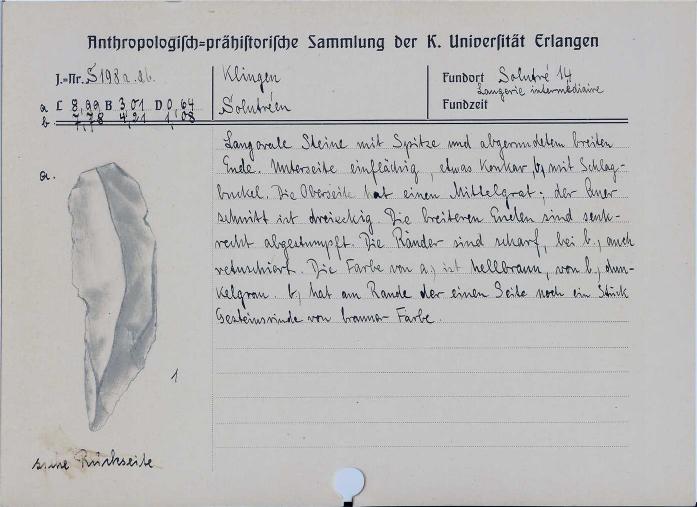 Anthropologisch=prähistorische Sammlung der K. Universität Erlangen
J.=Nr. 5198 a.b.
Klingen
Fundort Solutré 14
Langerie intermédiaire
a L 8,99 B 3,01 D 0,64
Solutréen
Fundzeit
b 7,78 4,21 1,08
Langovale Steine mit Spitze und abgerundetem breiten
Ende. Unterseite einflächig, etwas konkav, b, mit Schlag-
buckel. Die Oberseite hat einen Mittelgrat; der Quer
schnitt ist dreieckig. Die breiteren Enden sind senk-
recht abgestumpft. Die Ränder sind scharf, bei b, auch
retuschiert. Die Farbe von a, ist hellbraun, von b, dun-
kelgrau. b, hat am Rande der einen Seite noch ein Stück
Gesteinsrinde von brauner Farbe.
a.
1
siehe Rückseite